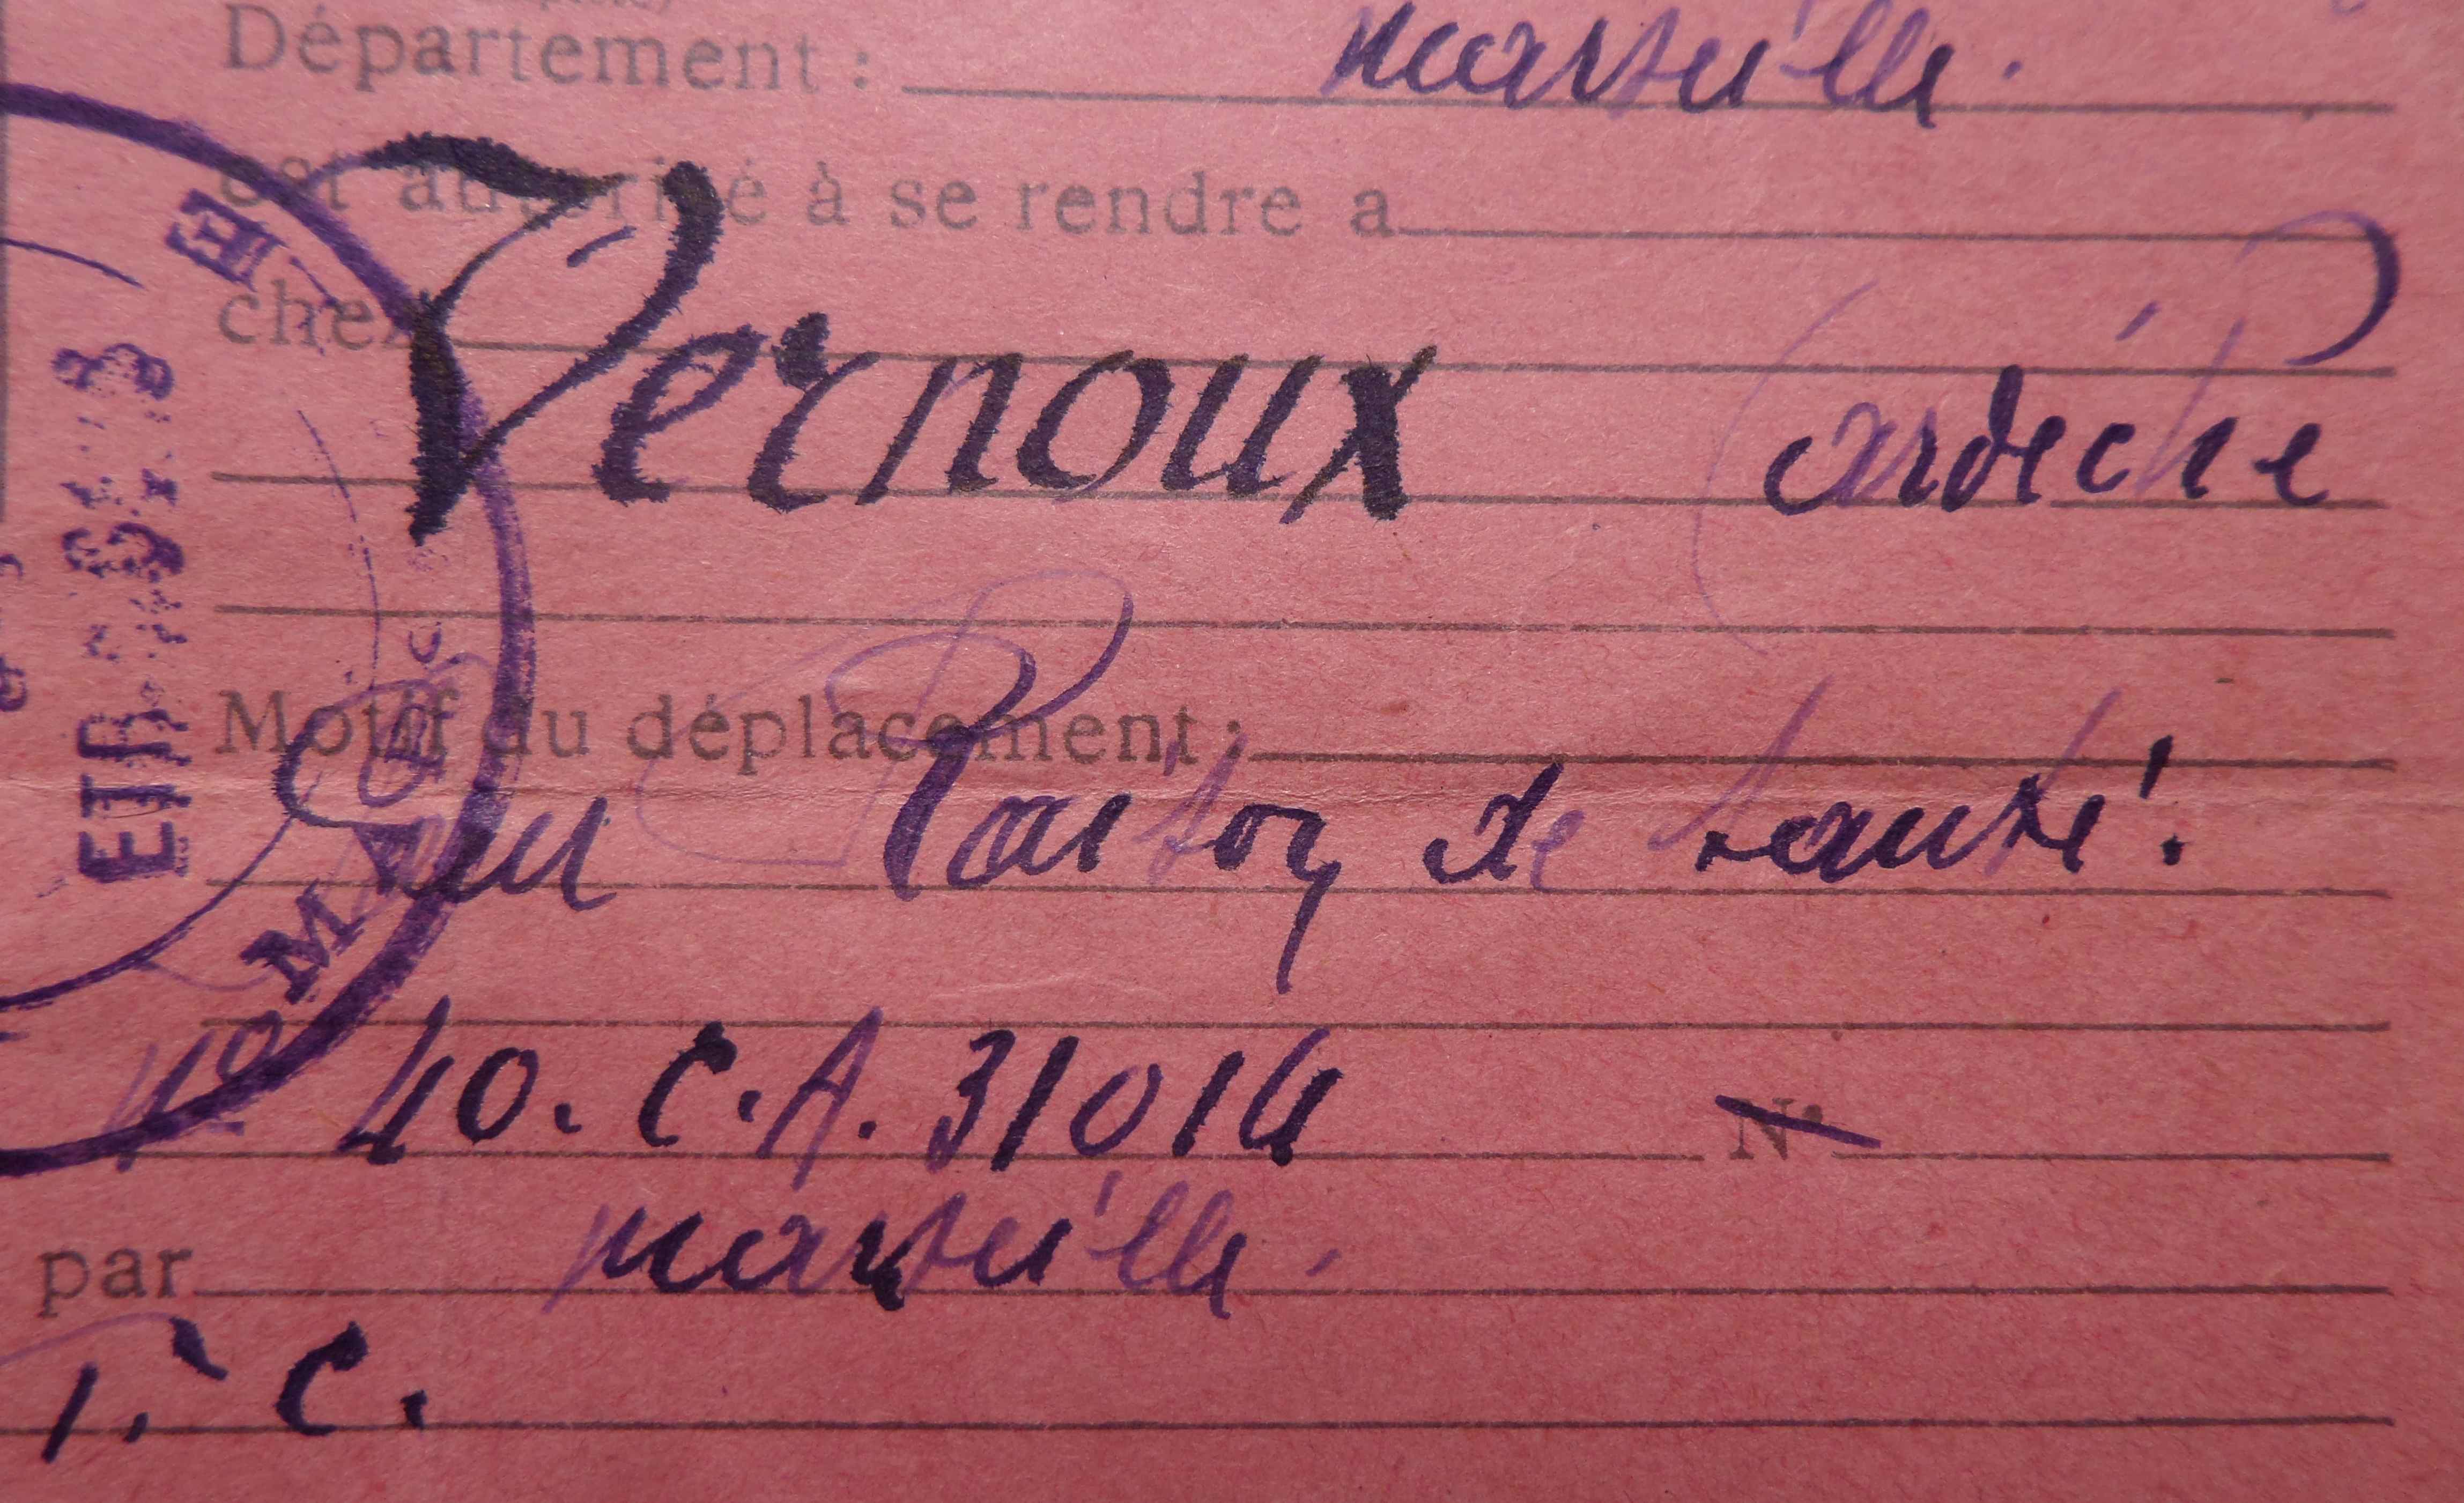 Département : Marseille.
est autorisé à se rendre a
chez
Vernoux (Ardèche)
Motif du déplacement :
Raison de santé.
40. C.A. 31014 N°
par Marseille.
T. C.
ETR